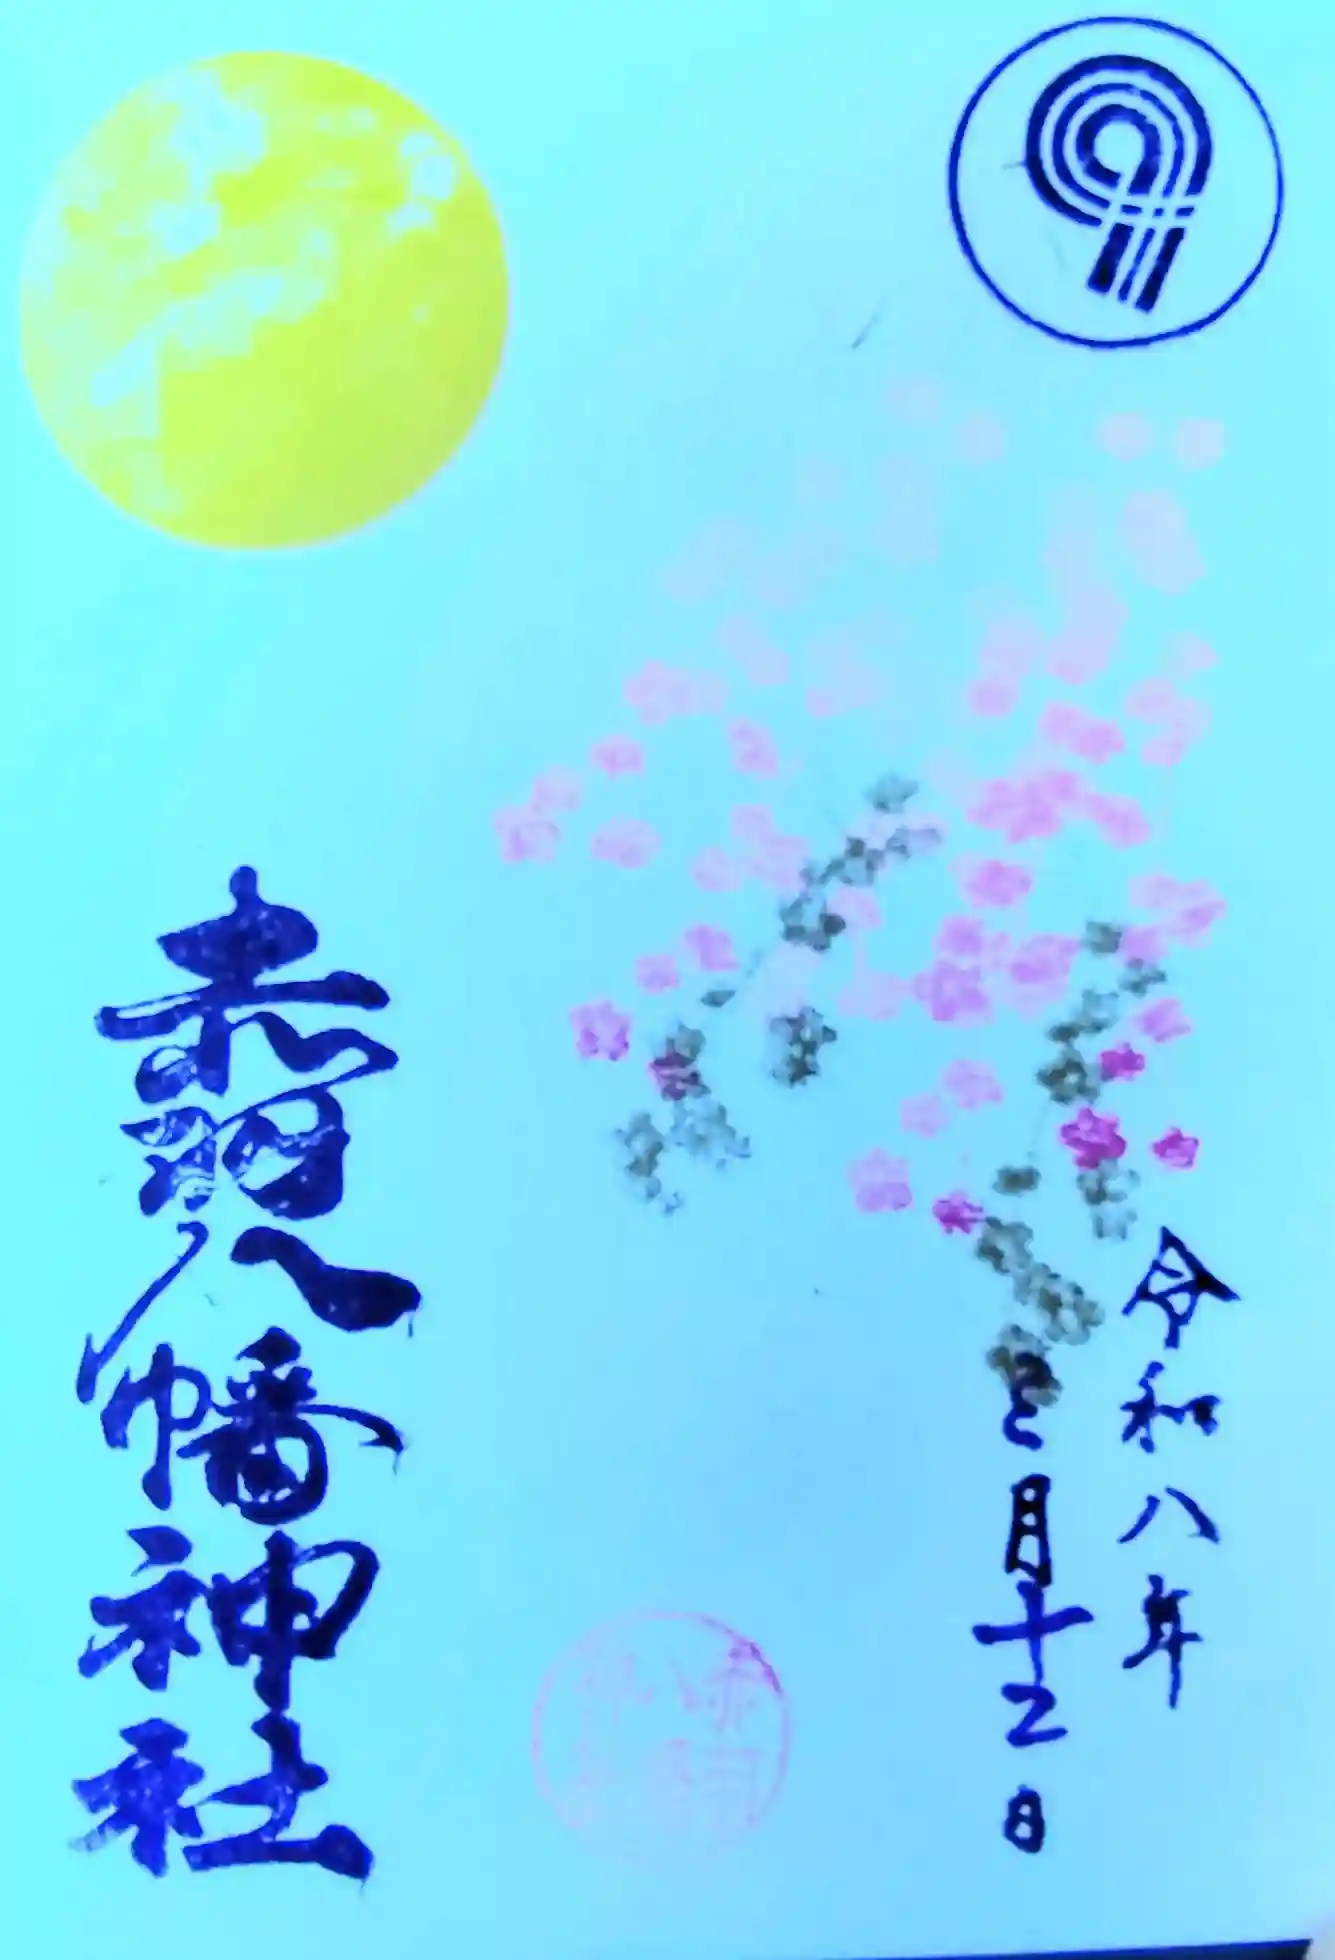 令和八年
三月十二日
赤羽八幡神社